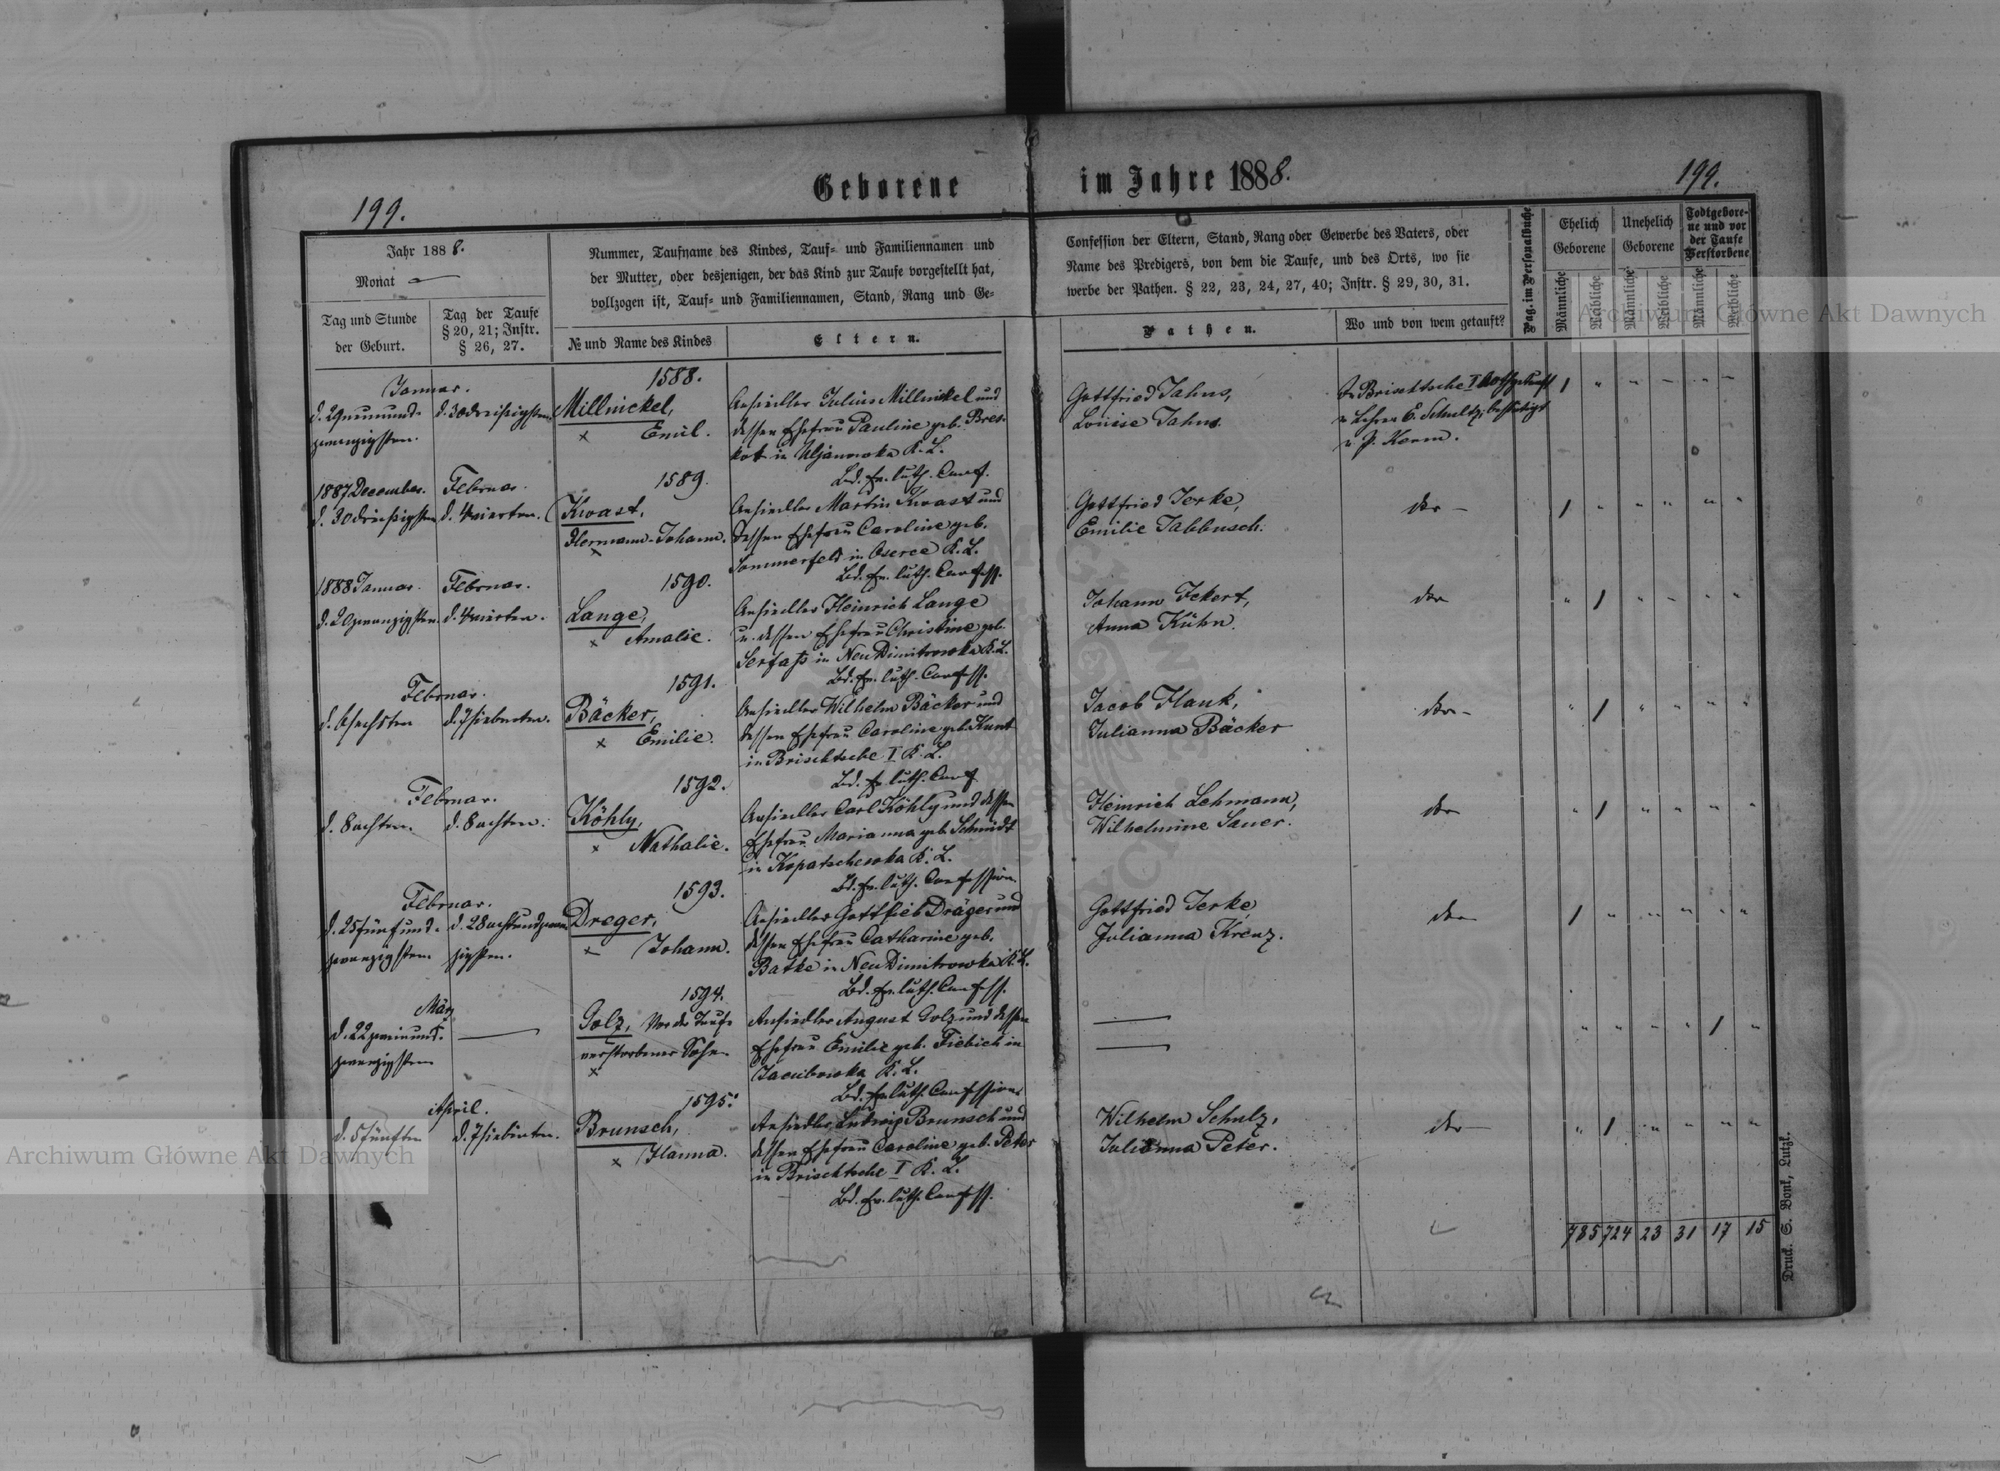 Geborene im Jahre 1888.
199.
199.
Jahr 1888.
Monat
Tag und Stunde
der Geburt.
Tag der Taufe
§ 20, 21; Instr.
§ 26, 27.
Nummer, Taufname des Kindes, Tauf- und Familiennamen und
der Mutter, oder desjenigen, der das Kind zur Taufe vorgestellt hat,
vollzogen ist, Tauf- und Familiennamen, Stand, Rang und Ge-
№ und Name des Kindes
Eltern.
Confession der Eltern, Stand, Rang oder Gewerbe des Vaters, oder
Name des Predigers, von dem die Taufe, und des Orts, wo sie
werbe der Pathen. § 22, 23, 24, 27, 40; Instr. § 29, 30, 31.
Pathen.
Wo und von wem getauft?
Pag. im Personalbuche
Ehelich
Geborene
Unehelich
Geborene
Todtgebore-
ne und vor
der Taufe
Verstorbene
Männliche
Weibliche
Männliche
Weibliche
Männliche
Weibliche
Januar.
d. 29 neunund-
zwanzigsten.
d. 30 dreißigsten
1588.
Millnickel,
× Emil.
Ansiedler Julius Millnickel und
dessen Ehefrau Pauline geb. Bres-
kot in Uljanowka K. L.
Bd. Ev. luth. Conf.
Gottfried Jahns,
Louise Jahns.
In Brischtsche I Nothgetauft
v. Lehrer E. Schultz, bestätigt
v. P. Kerm.
1 " " " " "
1887 December.
d. 30 dreißigsten
Februar.
d. 4 vierten.
1589.
Kwast,
Hermann-Johann.
×
Ansiedler Martin Kwast und
dessen Ehefrau Caroline geb.
Sommerfeld in Oserce K. L.
Bd. Ev. luth. Confess.
Gottfried Jerke,
Emilie Tabbusch.
dto
1 " " " " "
1888 Januar.
d. 20 zwanzigsten.
Februar.
d. 4 vierten.
1590.
Lange,
× Amalie.
Ansiedler Heinrich Lange
u. dessen Ehefrau Christine geb.
Serfaß in Neu Dimitrowka K. L.
Bd. Ev. luth. Confess.
Johann Eckert,
Anna Kühn.
dto
" 1 " " " "
Februar.
d. 6 sechsten
d. 7 siebenten.
1591.
Bäcker,
× Emilie.
Ansiedler Wilhelm Bäcker und
dessen Ehefrau Caroline geb. Kunt
in Brischtsche I K. L.
Bd. Ev. luth. Conf
Jacob Hauk,
Julianna Bäcker
dto
" 1 " " " "
Februar.
d. 8 achten.
d. 8 achten.
1592.
Köhly,
× Nathalie.
Ansiedler Carl Köhly und dessen
Ehefrau Marianna geb. Schmidt
in Kopatschewka K. L.
Bd. Ev. luth. Confession.
Heinrich Lehmann,
Wilhelmine Sauer.
dto
" 1 " " " "
Februar.
d. 25 fünfund-
zwanzigsten
d. 28 achtundzwan-
zigsten.
1593.
Dreger,
× Johann.
Ansiedler Gottlieb Dräger und
dessen Ehefrau Catharine geb.
Batke in Neu Dimitrowka K. L.
Bd. Ev. luth. Confess.
Gottfried Jerke,
Julianna Krenz.
dto
1 " " " " "
März
d. 22 zweiund-
zwanzigsten
1594.
Golz, Vor der Taufe
verstorbener Sohn
×
Ansiedler August Golz und dessen
Ehefrau Emilie geb. Fiebich in
Jacubowka K. L.
Bd. Ev. luth. Confession
" " " " 1 "
April.
d. 5 fünften
d. 7 siebenten.
1595.
Brunsch,
× Hanna.
Ansiedler Ludwig Brunsch und
dessen Ehefrau Caroline geb. Peter
in Brischtsche I K. L.
Bd. Ev. luth. Confess.
Wilhelm Schulz,
Julianna Peter.
dto
" 1 " " " "
785 724 23 31 17 15
Druck. S. Bonk, Lutzk.
Archiwum Główne Akt Dawnych
Archiwum Główne Akt Dawnych